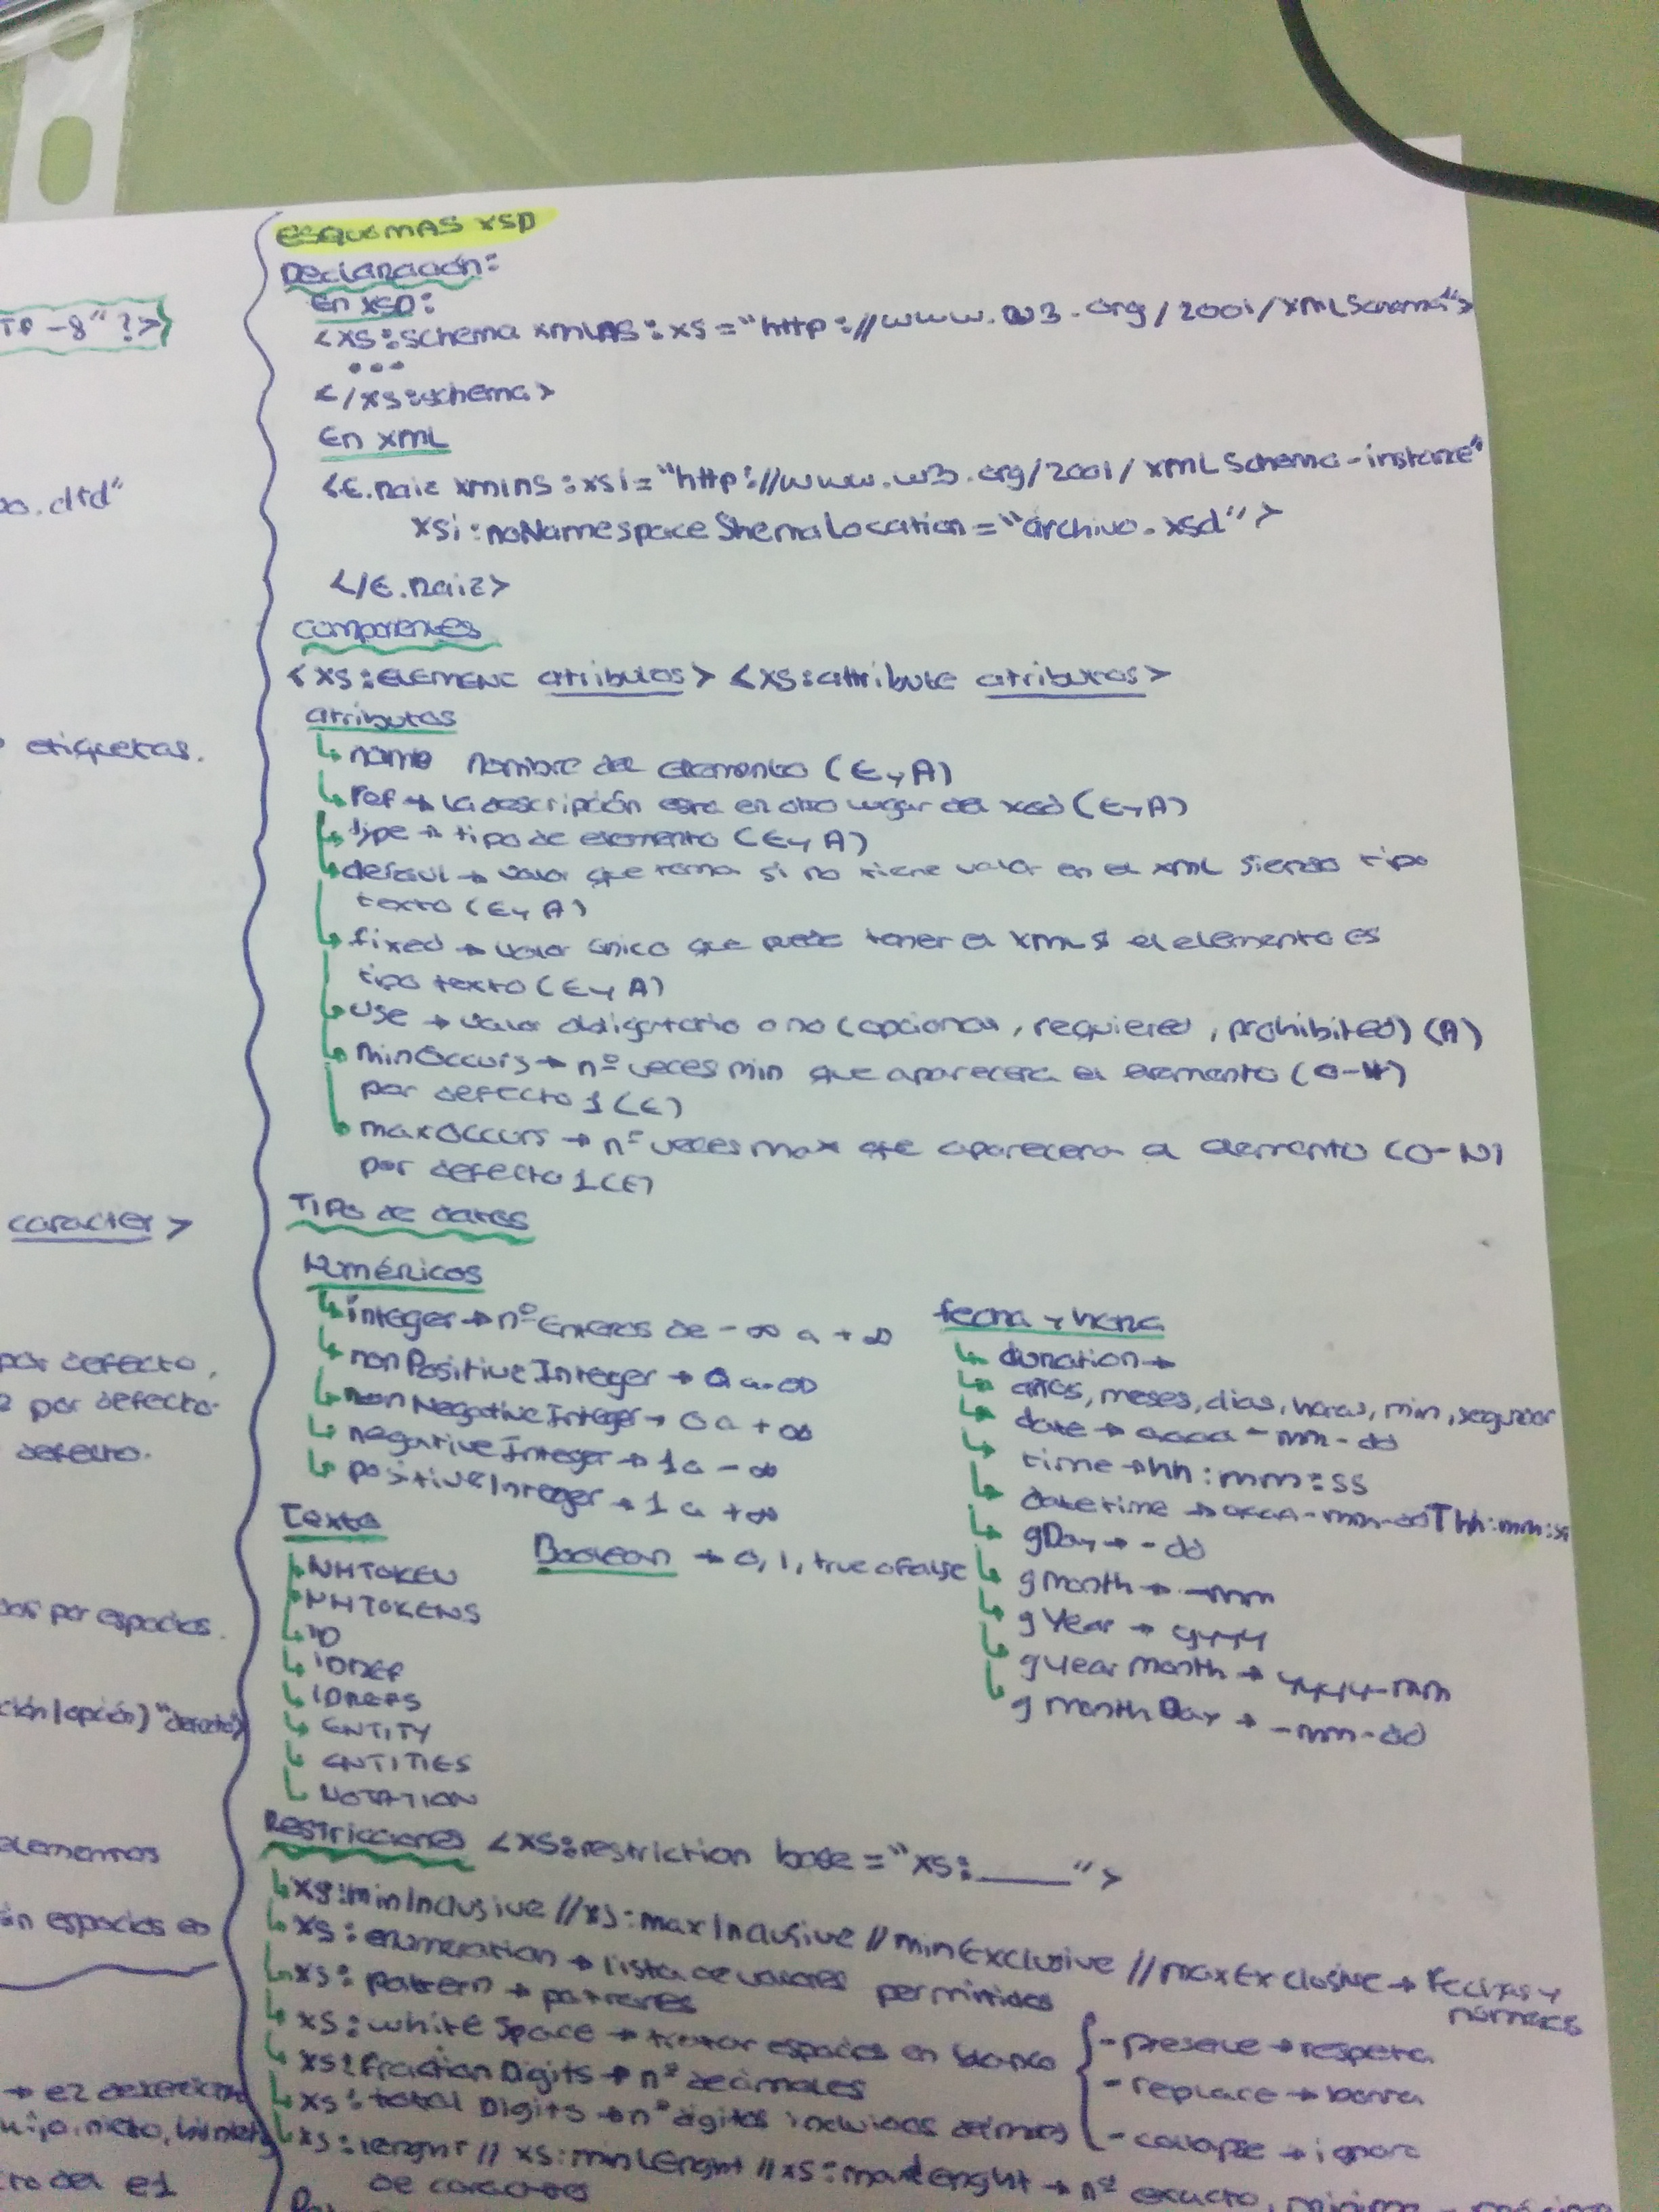 TF-8"?>
o.dtd"
etiquetas.
caracter >
por defecto,
por defecto.
defecto.
por espacios.
ción|opción)"defecto">
elementos
espacios en
hijo, nieto,
del e1
ESQUEMAS XSD
Declaración:
En XSD:
<xs:schema xmlns:xs="http://www.w3.org/2001/XMLSchema">
...
</xs:schema>
En XML
<E.raiz xmlns:xsi="http://www.w3.org/2001/XMLSchema-instance"
xsi:noNamespaceShemaLocation="archivo.xsd">
</E.raiz>
Componentes
<xs:ELEMENT atributos> <xs:attribute atributos>
atributos
↳ name nombre del elemento (E y A)
↳ ref → la descripción esta en otro lugar del xsd (E y A)
↳ type → tipo de elemento (E y A)
↳ defaul → valor que toma si no tiene valor en el XML siendo tipo
texto (E y A)
↳ fixed → valor único que puede tener el XML si el elemento es
tipo texto (E y A)
↳ use → valor obligatorio o no (opcional, requiered, prohibited) (A)
↳ minOccurs → nº veces min que aparecera el elemento (0-N)
por defecto 1 (E)
↳ maxOccurs → nº veces max que aparecera el elemento (0-N)
por defecto 1 (E)
Tipo de datos
Numéricos
↳ integer → nº Enteros de -∞ a +∞
↳ nonPositiveInteger → 0 a -∞
↳ nonNegativeInteger → 0 a +∞
↳ negativeInteger → 1 a -∞
↳ positiveInteger → 1 a +∞
fecha y hora
↳ duration →
↳ años, meses, dias, horas, min, segundos
↳ date → aaaa-mm-dd
↳ time → hh:mm:ss
↳ datetime → aaaa-mm-ddThh:mm:ss
↳ gDay → -dd
↳ gmonth → -mm
↳ gYear → yyyy
↳ gyear month → yyyy-mm
↳ g month Day → -mm-dd
Texto
↳ NMTOKEN
↳ NMTOKENS
↳ ID
↳ IDREF
↳ IDREFS
↳ ENTITY
↳ ENTITIES
↳ NOTATION
Boolean → 0, 1, true o false
Restricciones <xs:restriction base="xs:____">
↳ xs:minInclusive // xs:maxInclusive // minExclusive // maxExclusive → Fechas y
números
↳ xs:enumeration → lista de valores permitidos
↳ xs:pattern → patrones
↳ xs:whiteSpace → tratar espacios en blanco
- preserve → respeta
- replace → borra
- collapse → ignora
↳ xs:fractionDigits → nº decimales
↳ xs:total Digits → nº digitos incluidos decimales
↳ xs:lenght // xs:minLenght // xs:maxLenght → nº exacto,
de caracteres